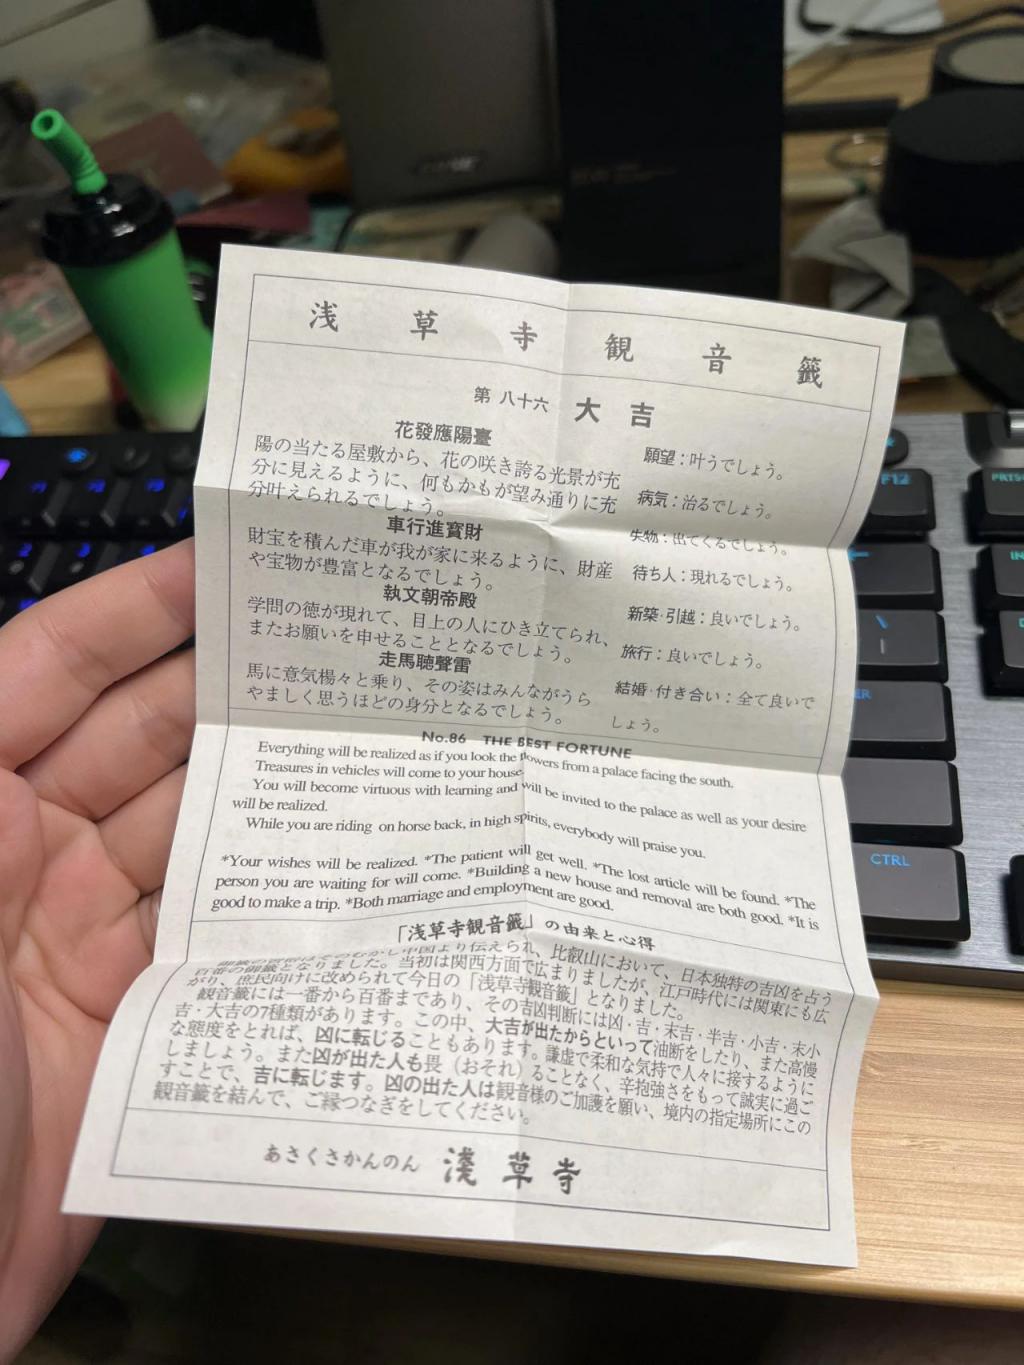 浅草寺観音籤
第八十六 大吉
花發應陽臺
陽の当たる屋敷から、花の咲き誇る光景が充
分に見えるように、何もかもが望み通りに充
分叶えられるでしょう。
車行進寳財
財宝を積んだ車が我が家に来るように、財産
や宝物が豊富となるでしょう。
執文朝帝殿
学問の徳が現れて、目上の人にひき立てられ、
またお願いを申せることとなるでしょう。
走馬聴聲雷
馬に意気楊々と乗り、その姿はみんながうら
やましく思うほどの身分となるでしょう。
願望：叶うでしょう。
病気：治るでしょう。
失物：出てくるでしょう。
待ち人：現れるでしょう。
新築・引越：良いでしょう。
旅行：良いでしょう。
結婚・付き合い：全て良いで
しょう。
No.86 THE BEST FORTUNE
Everything will be realized as if you look the flowers from a palace facing the south.
Treasures in vehicles will come to your house.
You will become virtuous with learning and will be invited to the palace as well as your desire
will be realized.
While you are riding on horse back, in high spirits, everybody will praise you.
*Your wishes will be realized. *The patient will get well. *The lost article will be found. *The
person you are waiting for will come. *Building a new house and removal are both good. *It is
good to make a trip. *Both marriage and employment are good.
「浅草寺観音籤」の由来と心得
中国より伝えられ、比叡山において、日本独特の吉凶を占う
百番の御籤となりました。当初は関西方面で広まりましたが、江戸時代には関東にも広
がり、庶民向けに改められて今日の「浅草寺観音籤」となりました。
観音籤には一番から百番まであり、その吉凶判断には凶・吉・末吉・半吉・小吉・末小
吉・大吉の7種類があります。この中、大吉が出たからといって油断をしたり、また高慢
な態度をとれば、凶に転じることもあります。謙虚で柔和な気持で人々に接するように
しましょう。また凶が出た人も畏（おそれ）ることなく、辛抱強さをもって誠実に過ご
すことで、吉に転じます。凶の出た人は観音様のご加護を願い、境内の指定場所にこの
観音籤を結んで、ご縁つなぎをしてください。
あさくさかんのん 淺草寺
F12
CTRL